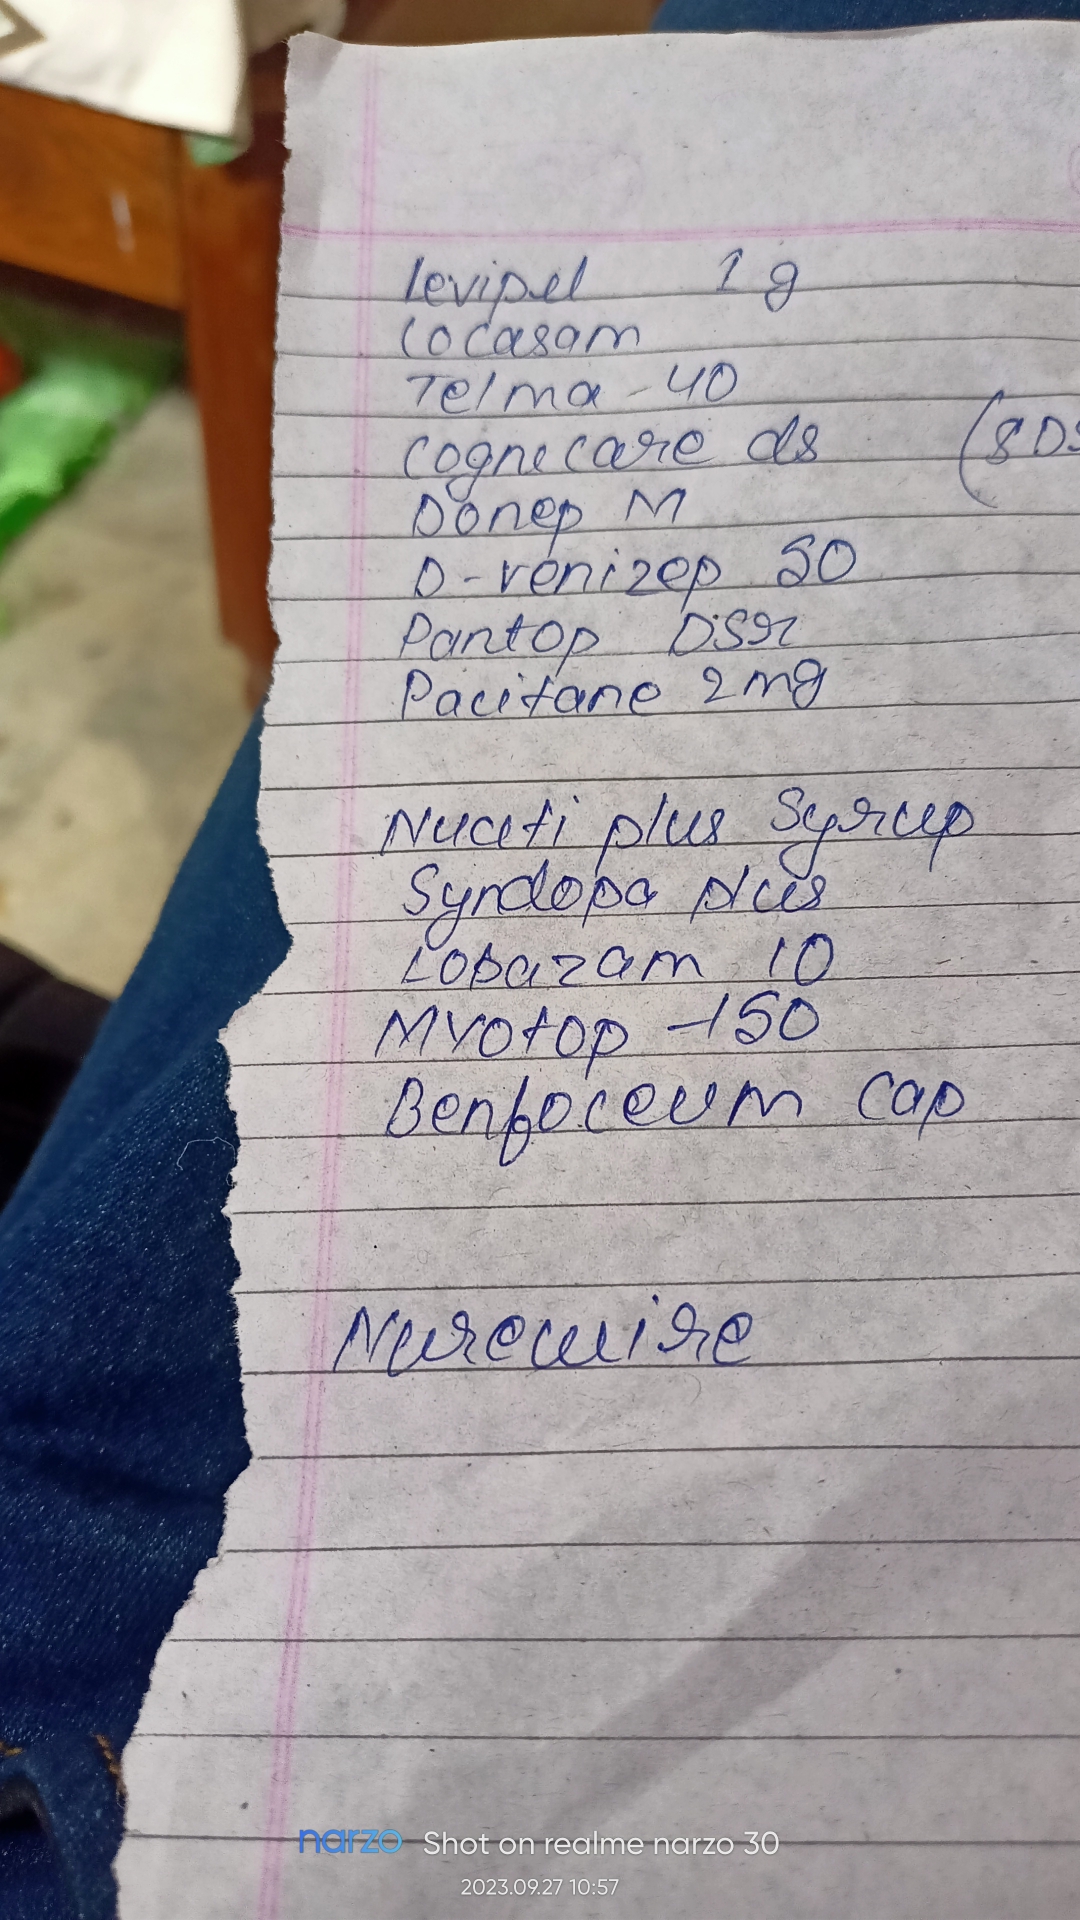 levipil 1 g
Locasam
Telma - 40
Cognecare ds (SDS
Donep M
D-venizep 50
Pantop DSR
Pacitane 2mg
Nuceti plus Syrup
Syndopa plus
Lobazam 10
Myotop -150
Benfoceum Cap
Nurewire
narzo Shot on realme narzo 30
2023.09.27 10:57